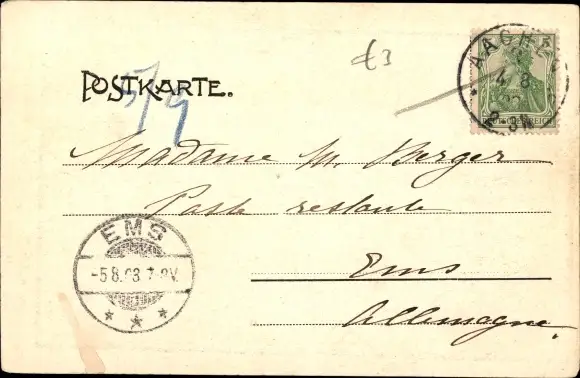 POSTKARTE.
57/9
£3
AACHEN
4 8
DEUTSCHES REICH
Madame M. Berger
Poste restante
EMS
-5.8.03.7-8V.
Ems
Allemagne.